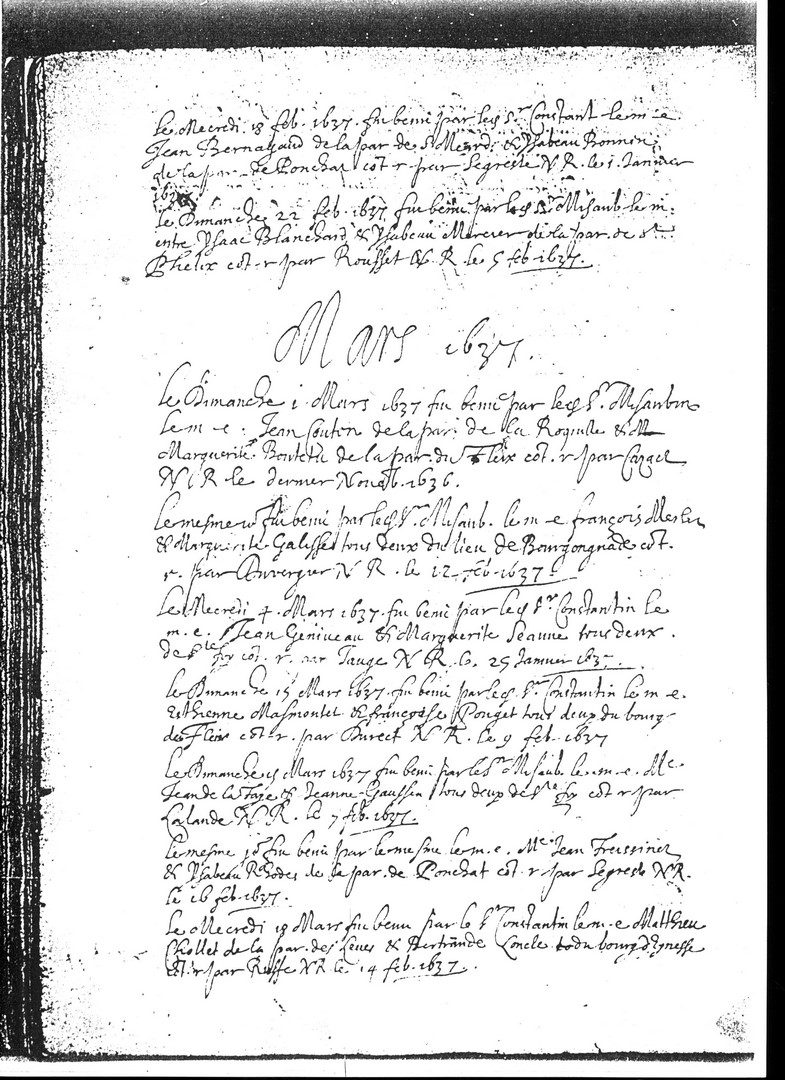 le Mecredi 18 feb. 1637 fut beni par led Sr. Constant le m-e
Jean Bernagaud de la par de St Meard & Ysabeau Bonnin
de la par. de Ponchat cot-r par Legreste N R. le 1 Janvier
1637
le Dimanche 22 feb 1637 fut beni par led Sr Misaub le m.
entre Ysaac Blanchard & Ysabeau Mercier de la par. de St
Phelix cot-r par Rousset N. R. le 5 feb 1637.
Mars 1637.
le Dimanche 1 Mars 1637 fut beni par led Sr. Misaubin
le m-e. Jean Coutin de la par. de la Roquille &
Marguerite Boutetu de la par. du Fleix cot. r par
N R le dernier Novemb. 1636.
le mesme fut beni par led Sr. Misaub. le m-e françois Mesler
& Marguerite Galisset tous deux du lieu de Bourgongnade cot.
r. par Auvergne N R. le 12 feb 1637.
le Mecredi 4. Mars 1637. fut beni par led Sr Constantin le
m. e. Jean Geniveau & Marguerite Jeanne tous deux.
de Ste foy cot. r. par Tauge N R. le 25 Janvier
le Dimanche 15 Mars 1637. fut beni par led. Sr. Constantin le m-e.
Esthienne Masmontet & françoise Pouget tous deux du bourg
de Fleix cot-r. par Burect N R. le 9 feb. 1637
Le Dimanche 15 Mars 1637 fut beni par le Sr Misaub. le m-e. Me
Jean de la Faye & Jeanne Gaussin tous deux de Ste foy cot r par
Lalande N R. le 7 feb. 1637.
le mesme jo fut beni par le mesme le m. e. Me Jean Freissiniet
& Ysabeau Rhodes de la par. de Ponchat cot. r par Legreste N R.
le 16 feb. 1637.
Le Mecredi 18 Mars fut beni par le Sr Constantin le m-e Matthieu
Chollet de la par. des Leves & Bertrande Concle du bourg d'Gnesse
cot r par N R le 14 feb. 1637.